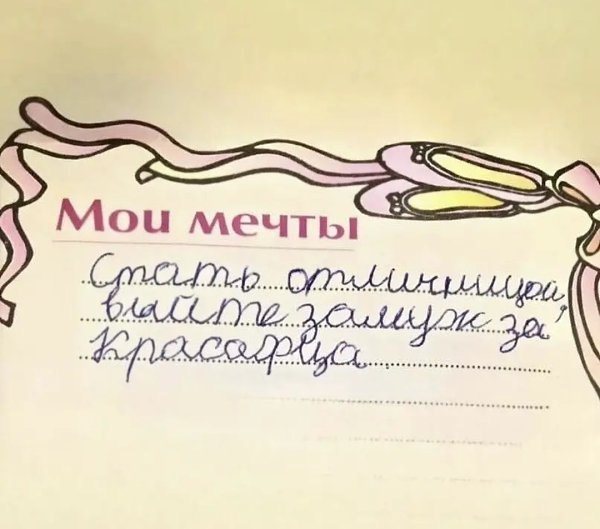 Мои мечты
Стать отличницой,
выйте замуж за
красафца